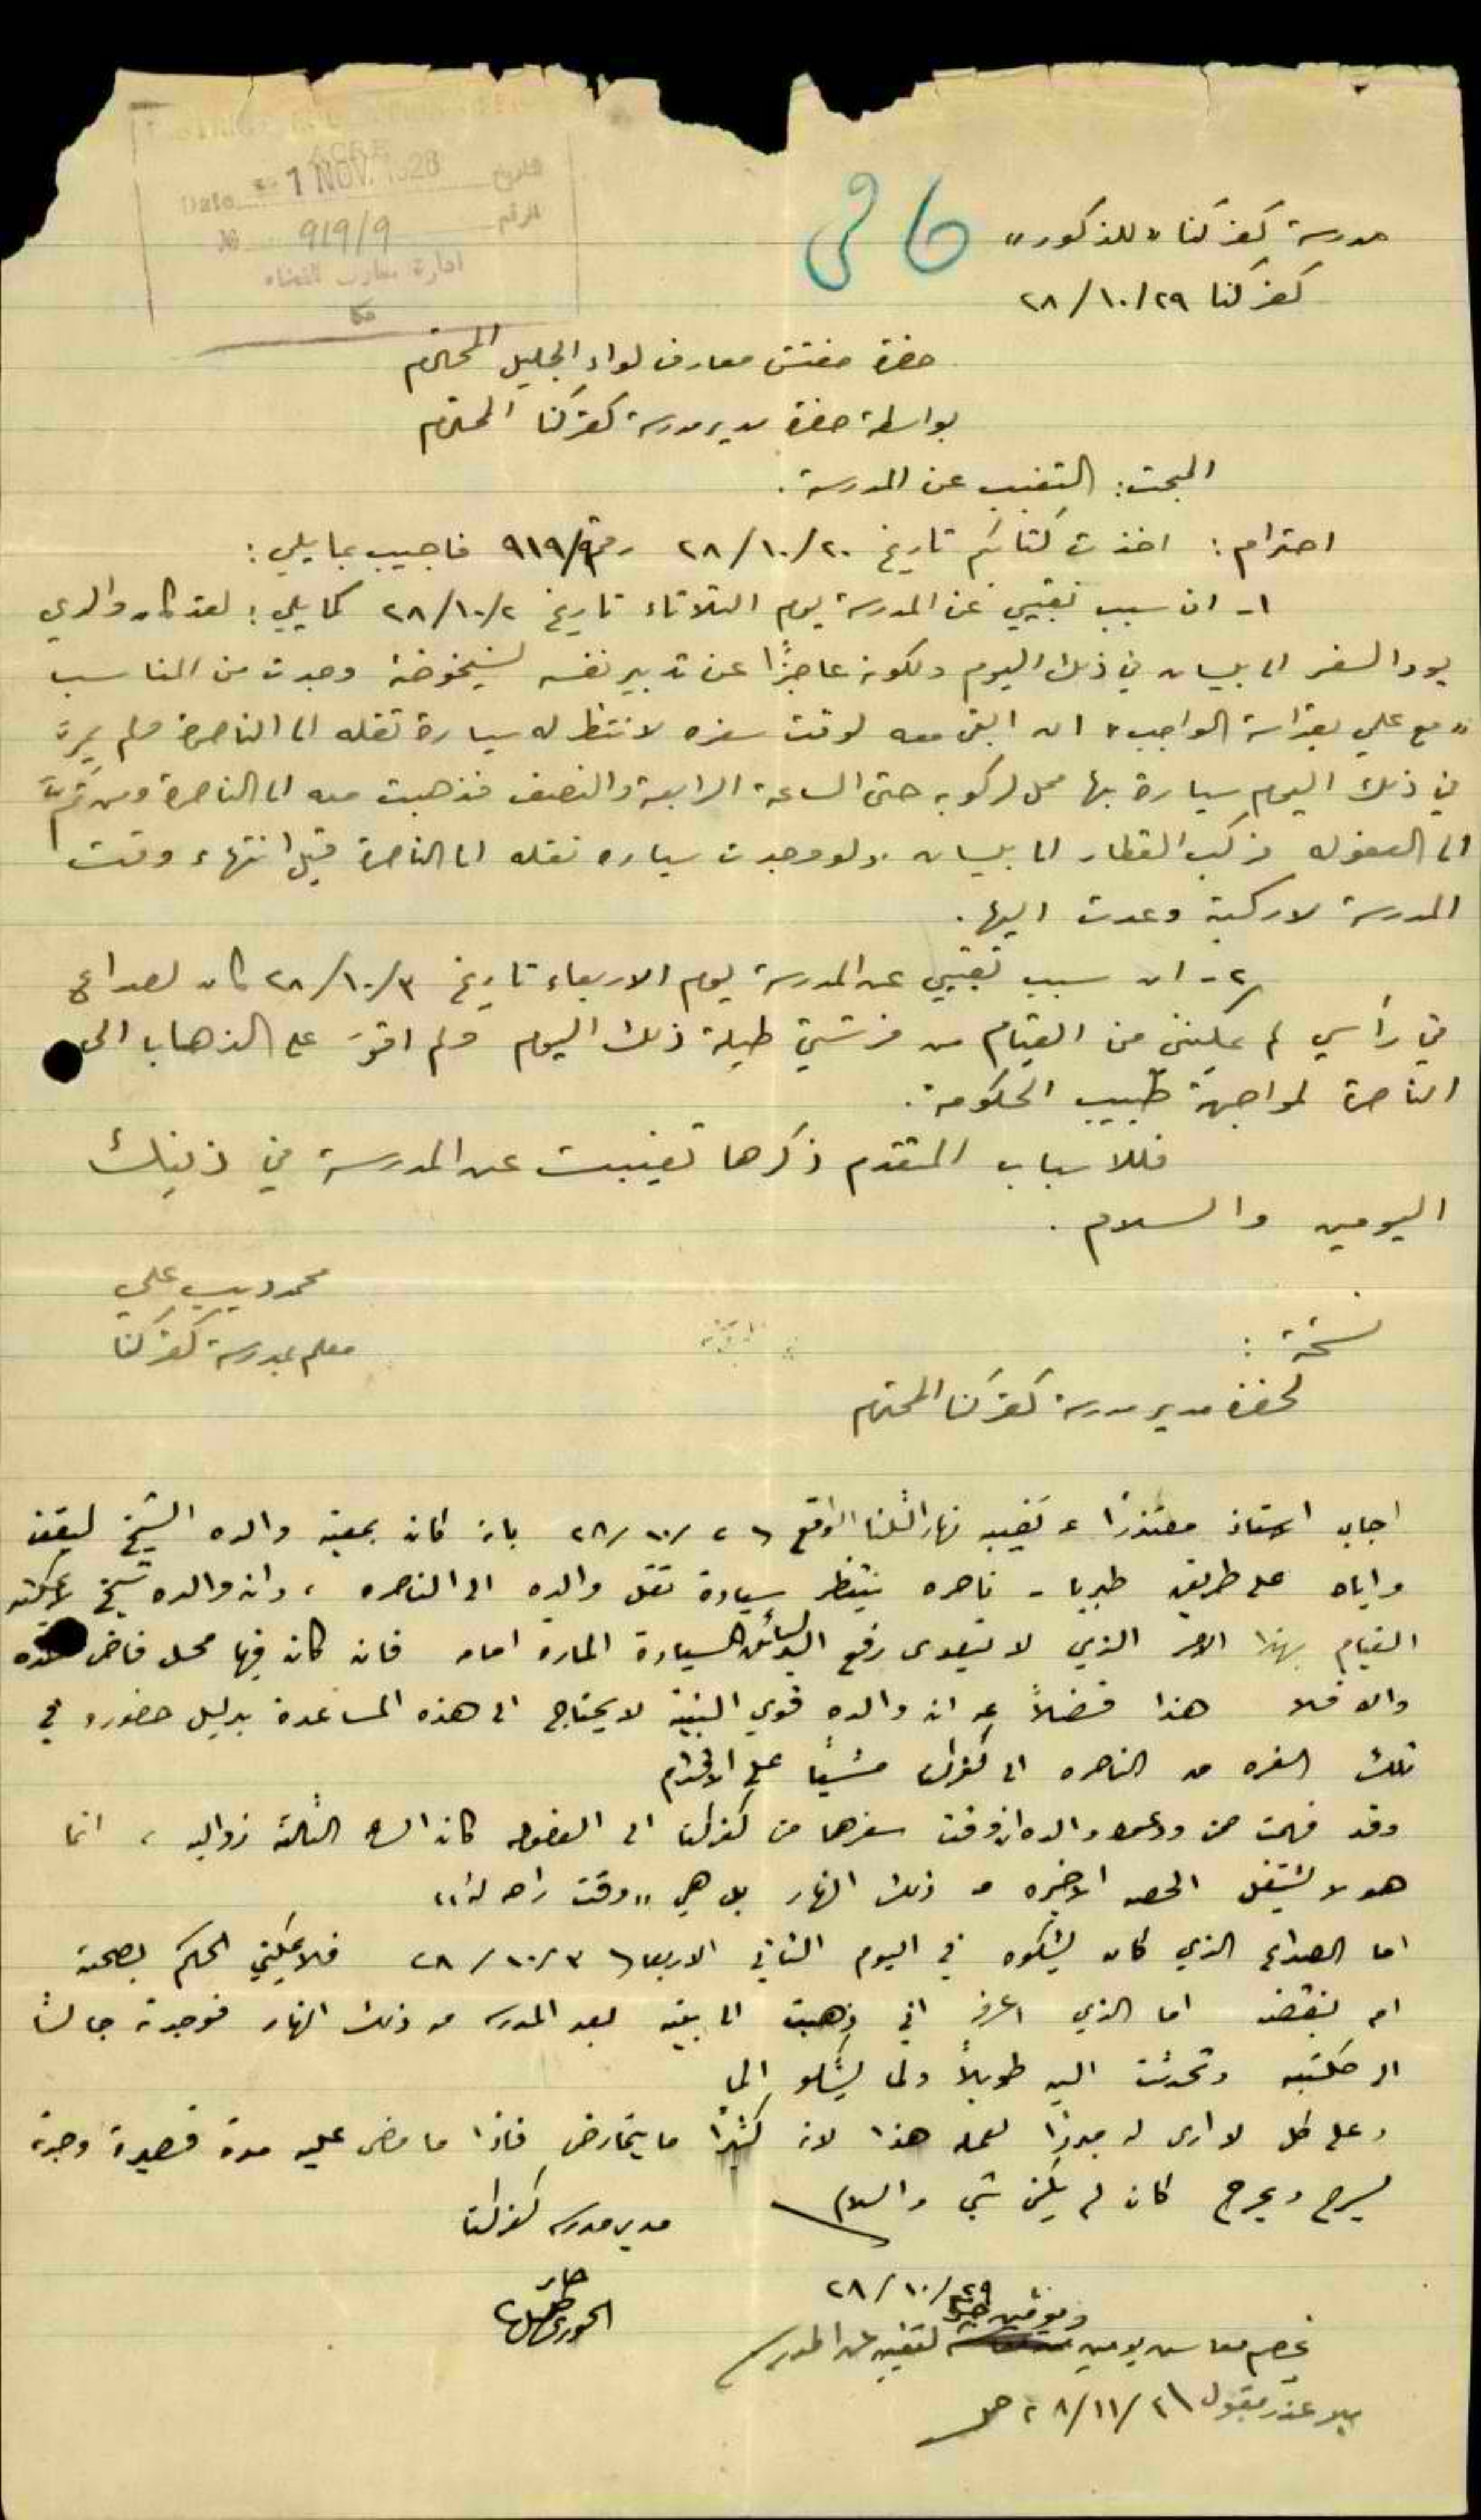 ACRE
Date 1 NOV. 1928 تاريخ
№ 919/9 الرقم
ادارة معارف القضاء
عكا
مدرسة كفركنا "للذكور"
كفركنا ٢٩/١٠/٢٨
حضرة مفتش معارف لواء الجليل المحترم
بواسطة حضرة مدير مدرسة كفركنا المحترم
المبحث: التغيب عن المدرسة.
احترام: اخذت كتابكم تاريخ ٢٠/١٠/٢٨ رقم ٩١٩/٩ فاجيب بما يلي:
١- ان سبب تغيبي عن المدرسة يوم الثلاثاء تاريخ ٢/١٠/٢٨ كما يلي: لقد كان والدي
يود السفر الى بيسان في ذلك اليوم ولكونه عاجزًا عن تدبير نفسه لشيخوخته وجدت من المناسب
"مع علمي بقداسة الواجب" ان ابقى معه لوقت سفره لانتظر له سيارة تقله الى الناصرة فلم يمرّ
في ذلك اليوم سيارة بها محل لركوبه حتى الساعة الرابعة والنصف فذهبت معه الى الناصرة ومن ثمَّ
الى العفوله فركب القطار الى بيسان. ولو وجدت سياره تقله الى الناصرة قبل انتهاء وقت
المدرسة لاركبته وعدت اليها.
٢- ان سبب تغيبي عن المدرسة يوم الاربعاء تاريخ ٣/١٠/٢٨ كان لصداع
في رأسي لم يمكنني من القيام من فرشتي طيلة ذلك اليوم ولم اقوَ على الذهاب الى
الناصرة لمواجهة طبيب الحكومة.
فللاسباب المتقدم ذكرها تغيبت عن المدرسة في ذينك
اليومين والسلام.
محمد ديب علي
معلم بمدرسة كفركنا
نسخة:
لحضرة مدير مدرسة كفركنا المحترم
اجاب الاستاذ معتذرًا عن تغيبه نهار الثلثا الواقع ٢/١٠/٢٨ بانه كان بمعية والده الشيخ ليقف
واياه على طريق طبريا - ناصره ينتظر سيارة تقل والده الى الناصره، وان والده شيخ لا يمكنه
القيام بهذا الامر الذي لا يتعدى رفع اليد لسائق السيارة المارة امامه فان كان فيها محل فاض
والا فلا هذا فضلاً عن ان والده قوي البنية لا يحتاج الى هذه المساعدة بدليل حضوره في
تلك السفره من الناصره الى كفركنا مشيًا على الاقدام
وقد فهمت ممن ودعوا والده ان وقت سفرهما من كفركنا الى العفوله كان الساعة الثالثة زواليه، انما
هو لا يشتغل الحصه الاخيره من ذلك النهار بل هي "وقت راحه له"
اما الصداع الذي كان يشكوه في اليوم الثاني الاربعا ٣/١٠/٢٨ فلا يمكنني الحكم بصحته
ام بنقضه اما الذي اعرفه اني ذهبت الى بيته بعد المدرسه من ذلك النهار فوجدته جالسًا
الى مكتبه وتحدثت اليه طويلاً ولما يشكو اليَّ
وعلى كل لا ارى له مبررًا لعمله هذا لانه كثيرًا ما يتمارض فاذا ما مضى عليه مدة قصيرة وجدته
يسرح ويمرح كأن لم يكن شي والسلام
مدير مدرسه كفركنا
الخوري
٢٩/١٠/٢٨
يخصم معاش يومين لتغيبه عن المدرسه
بلا عذر مقبول ٢/١١/٢٨